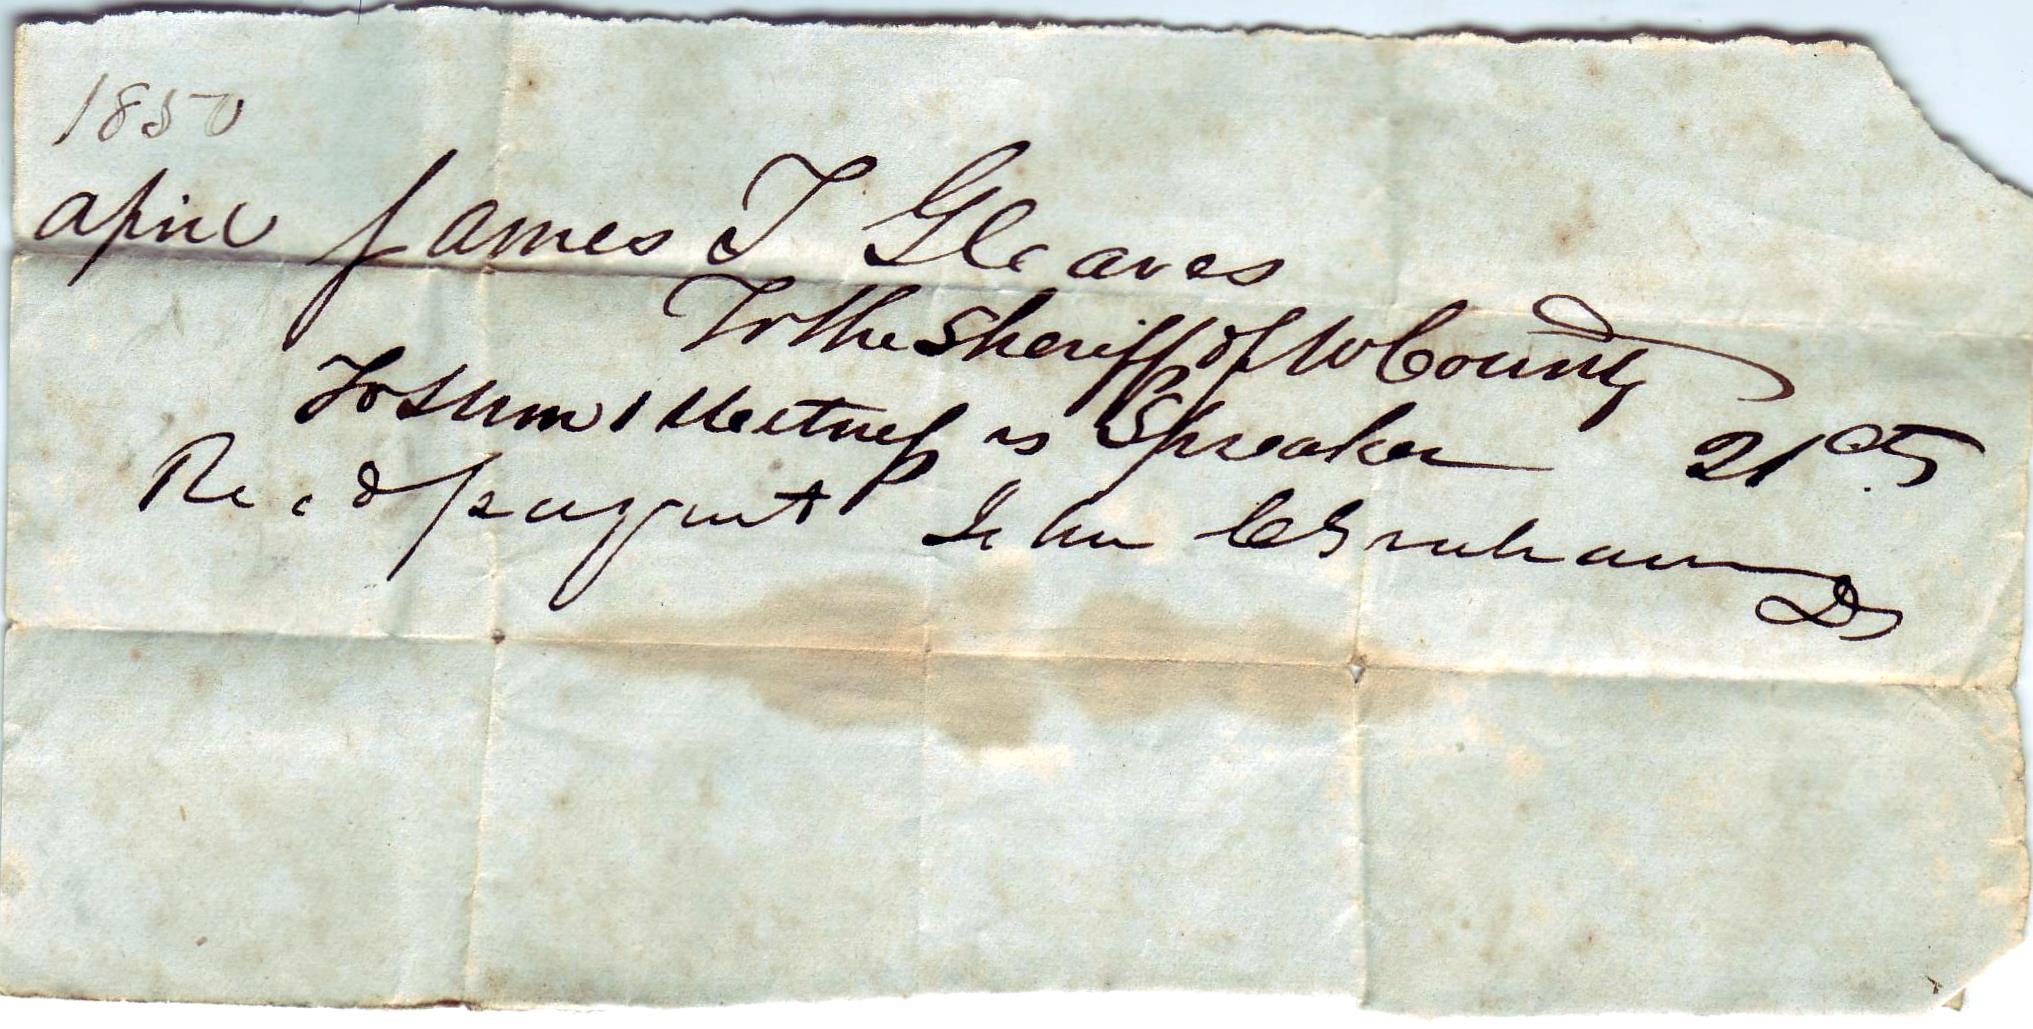 1850
April James T Gleaves
To the Sheriff of W County
To Sum 1 Witness vs Spraker 21 Cts
Recd payment John C Graham DS